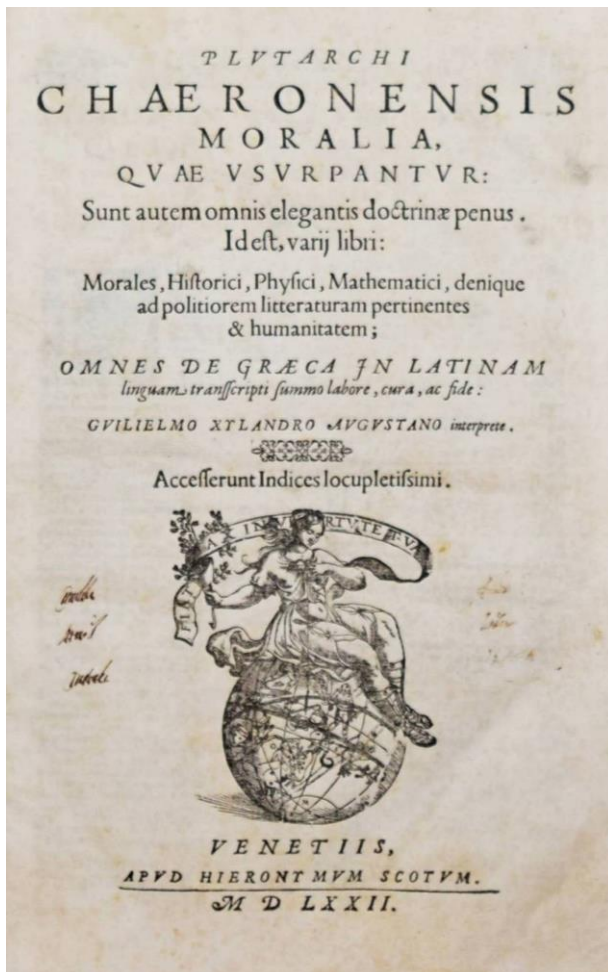 PLVTARCHI
CHAERONENSIS
MORALIA,
QVAE VSVRPANTVR:
Sunt autem omnis elegantis doctrinæ penus.
Id eſt, varij libri:
Morales, Hiſtorici, Phyſici, Mathematici, denique
ad politiorem litteraturam pertinentes
& humanitatem;
OMNES DE GRÆCA IN LATINAM
linguam tranſſcripti ſummo labore, cura, ac fide:
GVILIELMO XYLANDRO AVGVSTANO interprete.
Acceſſerunt Indices locupletiſsimi.
FIAT PAX IN VIRTVTE TVA
VENETIIS,
APVD HIERONYMVM SCOTVM.
M D LXXII.